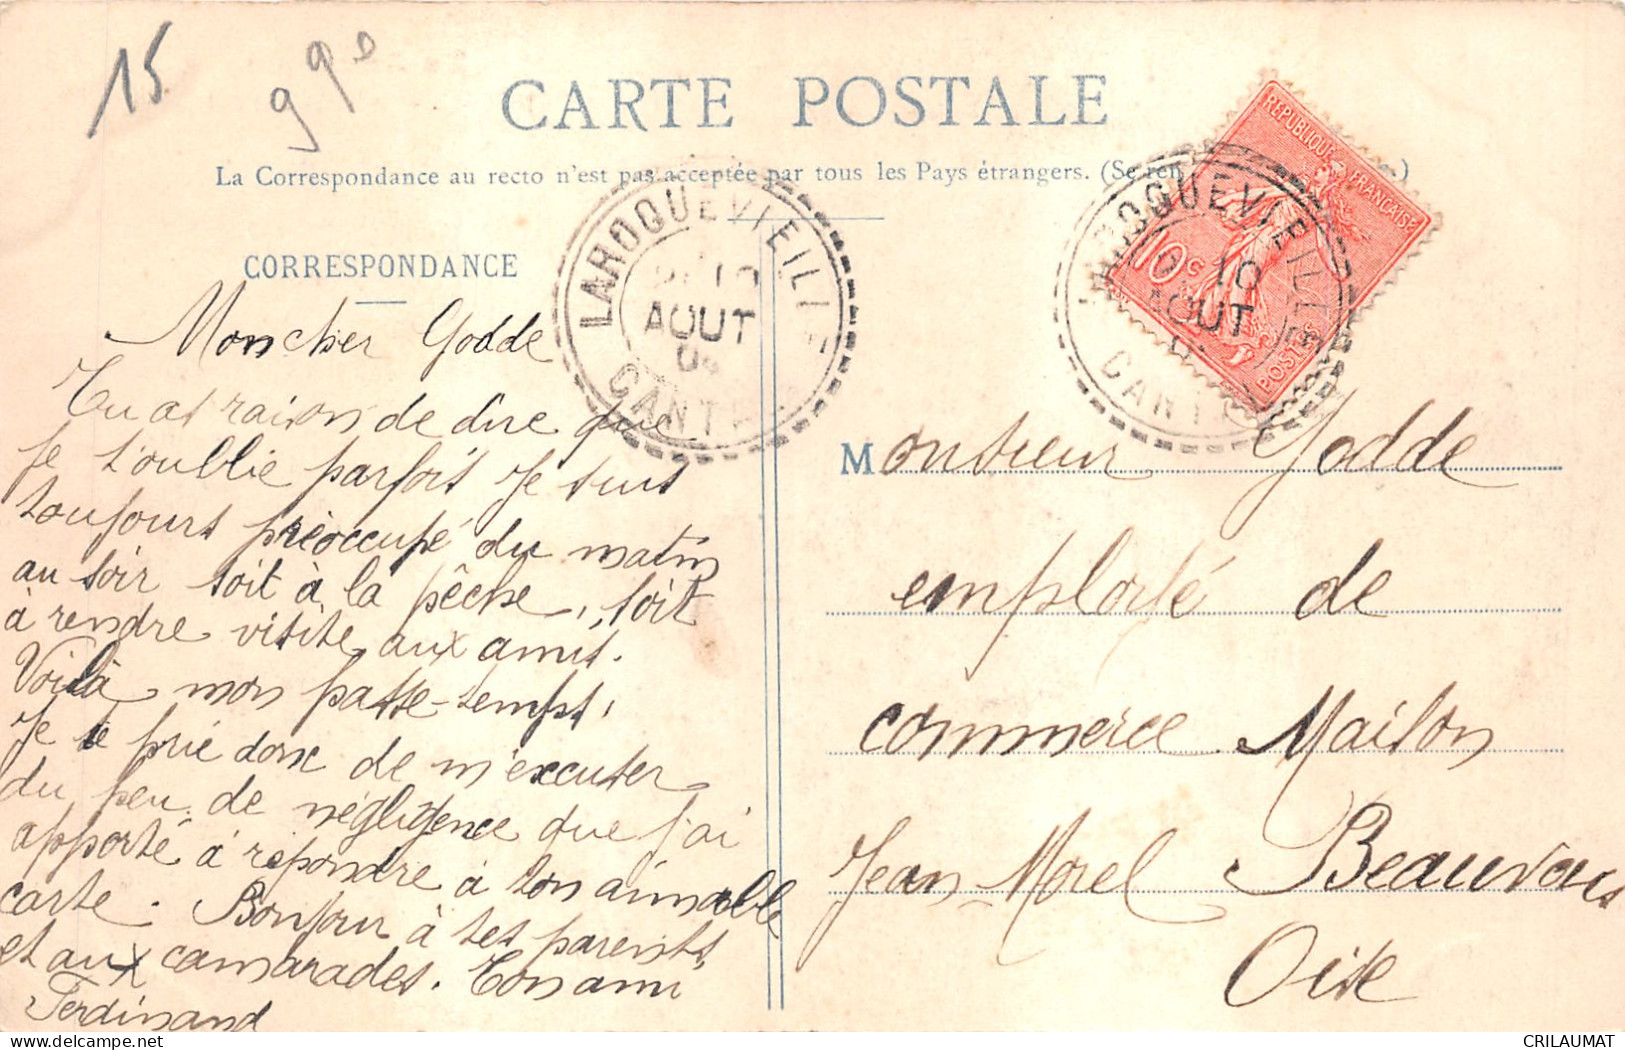 15
990
CARTE POSTALE
La Correspondance au recto n'est pas acceptée par tous les Pays étrangers. (Se ren
CORRESPONDANCE
LAROQUEVIEILLE
10
AOUT
CANTAL
REPUBLIQUE FRANÇAISE
10c
POSTES
LAROQUEVIEILLE
10
AOUT
CANTAL
Mon cher Godde
Tu as raison de dire que
je t'oublie parfois je suis
toujours préoccupé du matin
au soir soit à la pêche, soit
à rendre visite aux amis.
Voilà mon passe-temps,
Je te prie donc de m'excuser
du peu de négligence que j'ai
apporté à répondre à ton aimable
carte. Bonjour à tes parents,
et aux camarades. Ton ami
Ferdinand
Monsieur Godde
employé de
commerce Maison
Jean-Morel Beauvais
Oise
CRILAUMAT